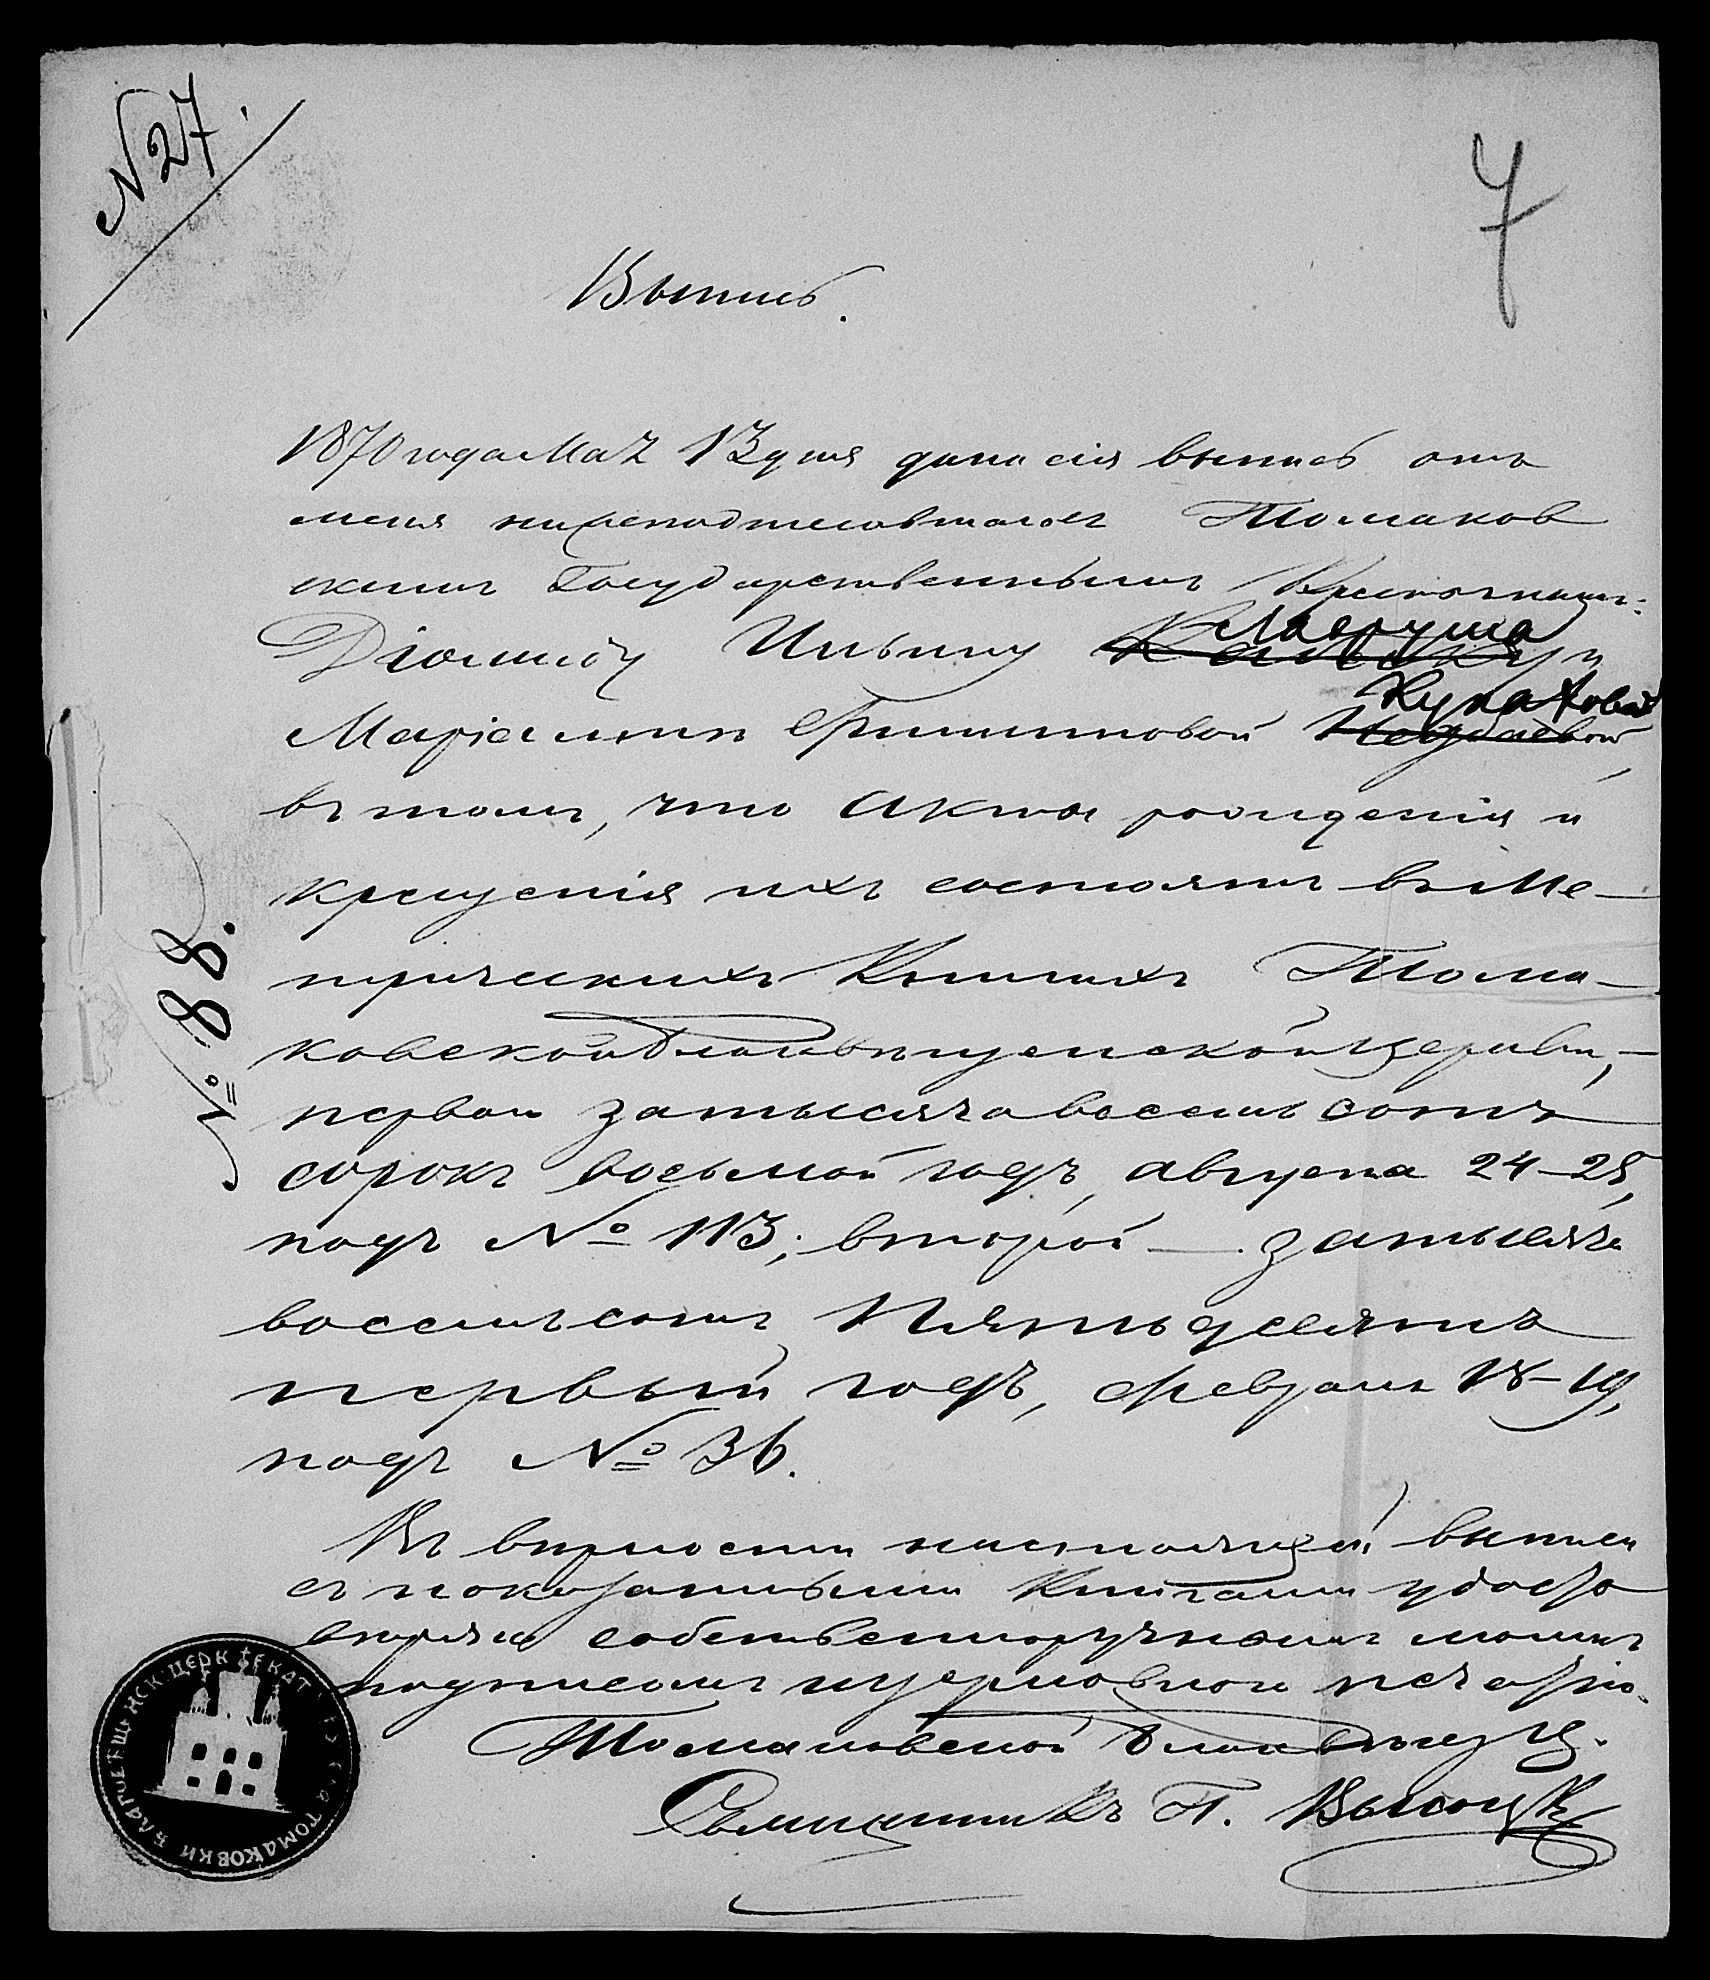 N 27.
7
Выпись.
1870 года Мая 13 дня дана сія выпись отъ
меня нижеподписавшагося Томаков
скимъ Государственнымъ Крестьянам:
Лаврута
Діомиду Ильину и
Кулаковой
Маріамни Филипповой
въ томъ, что Акты рожденія и
крещенія ихъ состоятъ въ Ме-
трическихъ Книгахъ Тома-
ковской Благовѣщенской Церкви, -
первой за тысяча восемь сотъ
сорокъ восьмой годъ, августа 24-25,
подъ № 113; второй - за тысяча
восемьсотъ Пятьдесятъ
первый годъ, февраля 18-19,
подъ № 36.
№ 88.
Въ вѣрности настоящей выписи
съ показанными Книгами удосто
вѣряю собственноручнымъ моимъ
подписомъ и церковною печатью.
Томаковской Благовѣщ. Ц.
Священникъ П. Высоцкій
БЛАГОВѢЩЕНСК: ЦЕРК ЕКАТ ТОМАКОВКИ